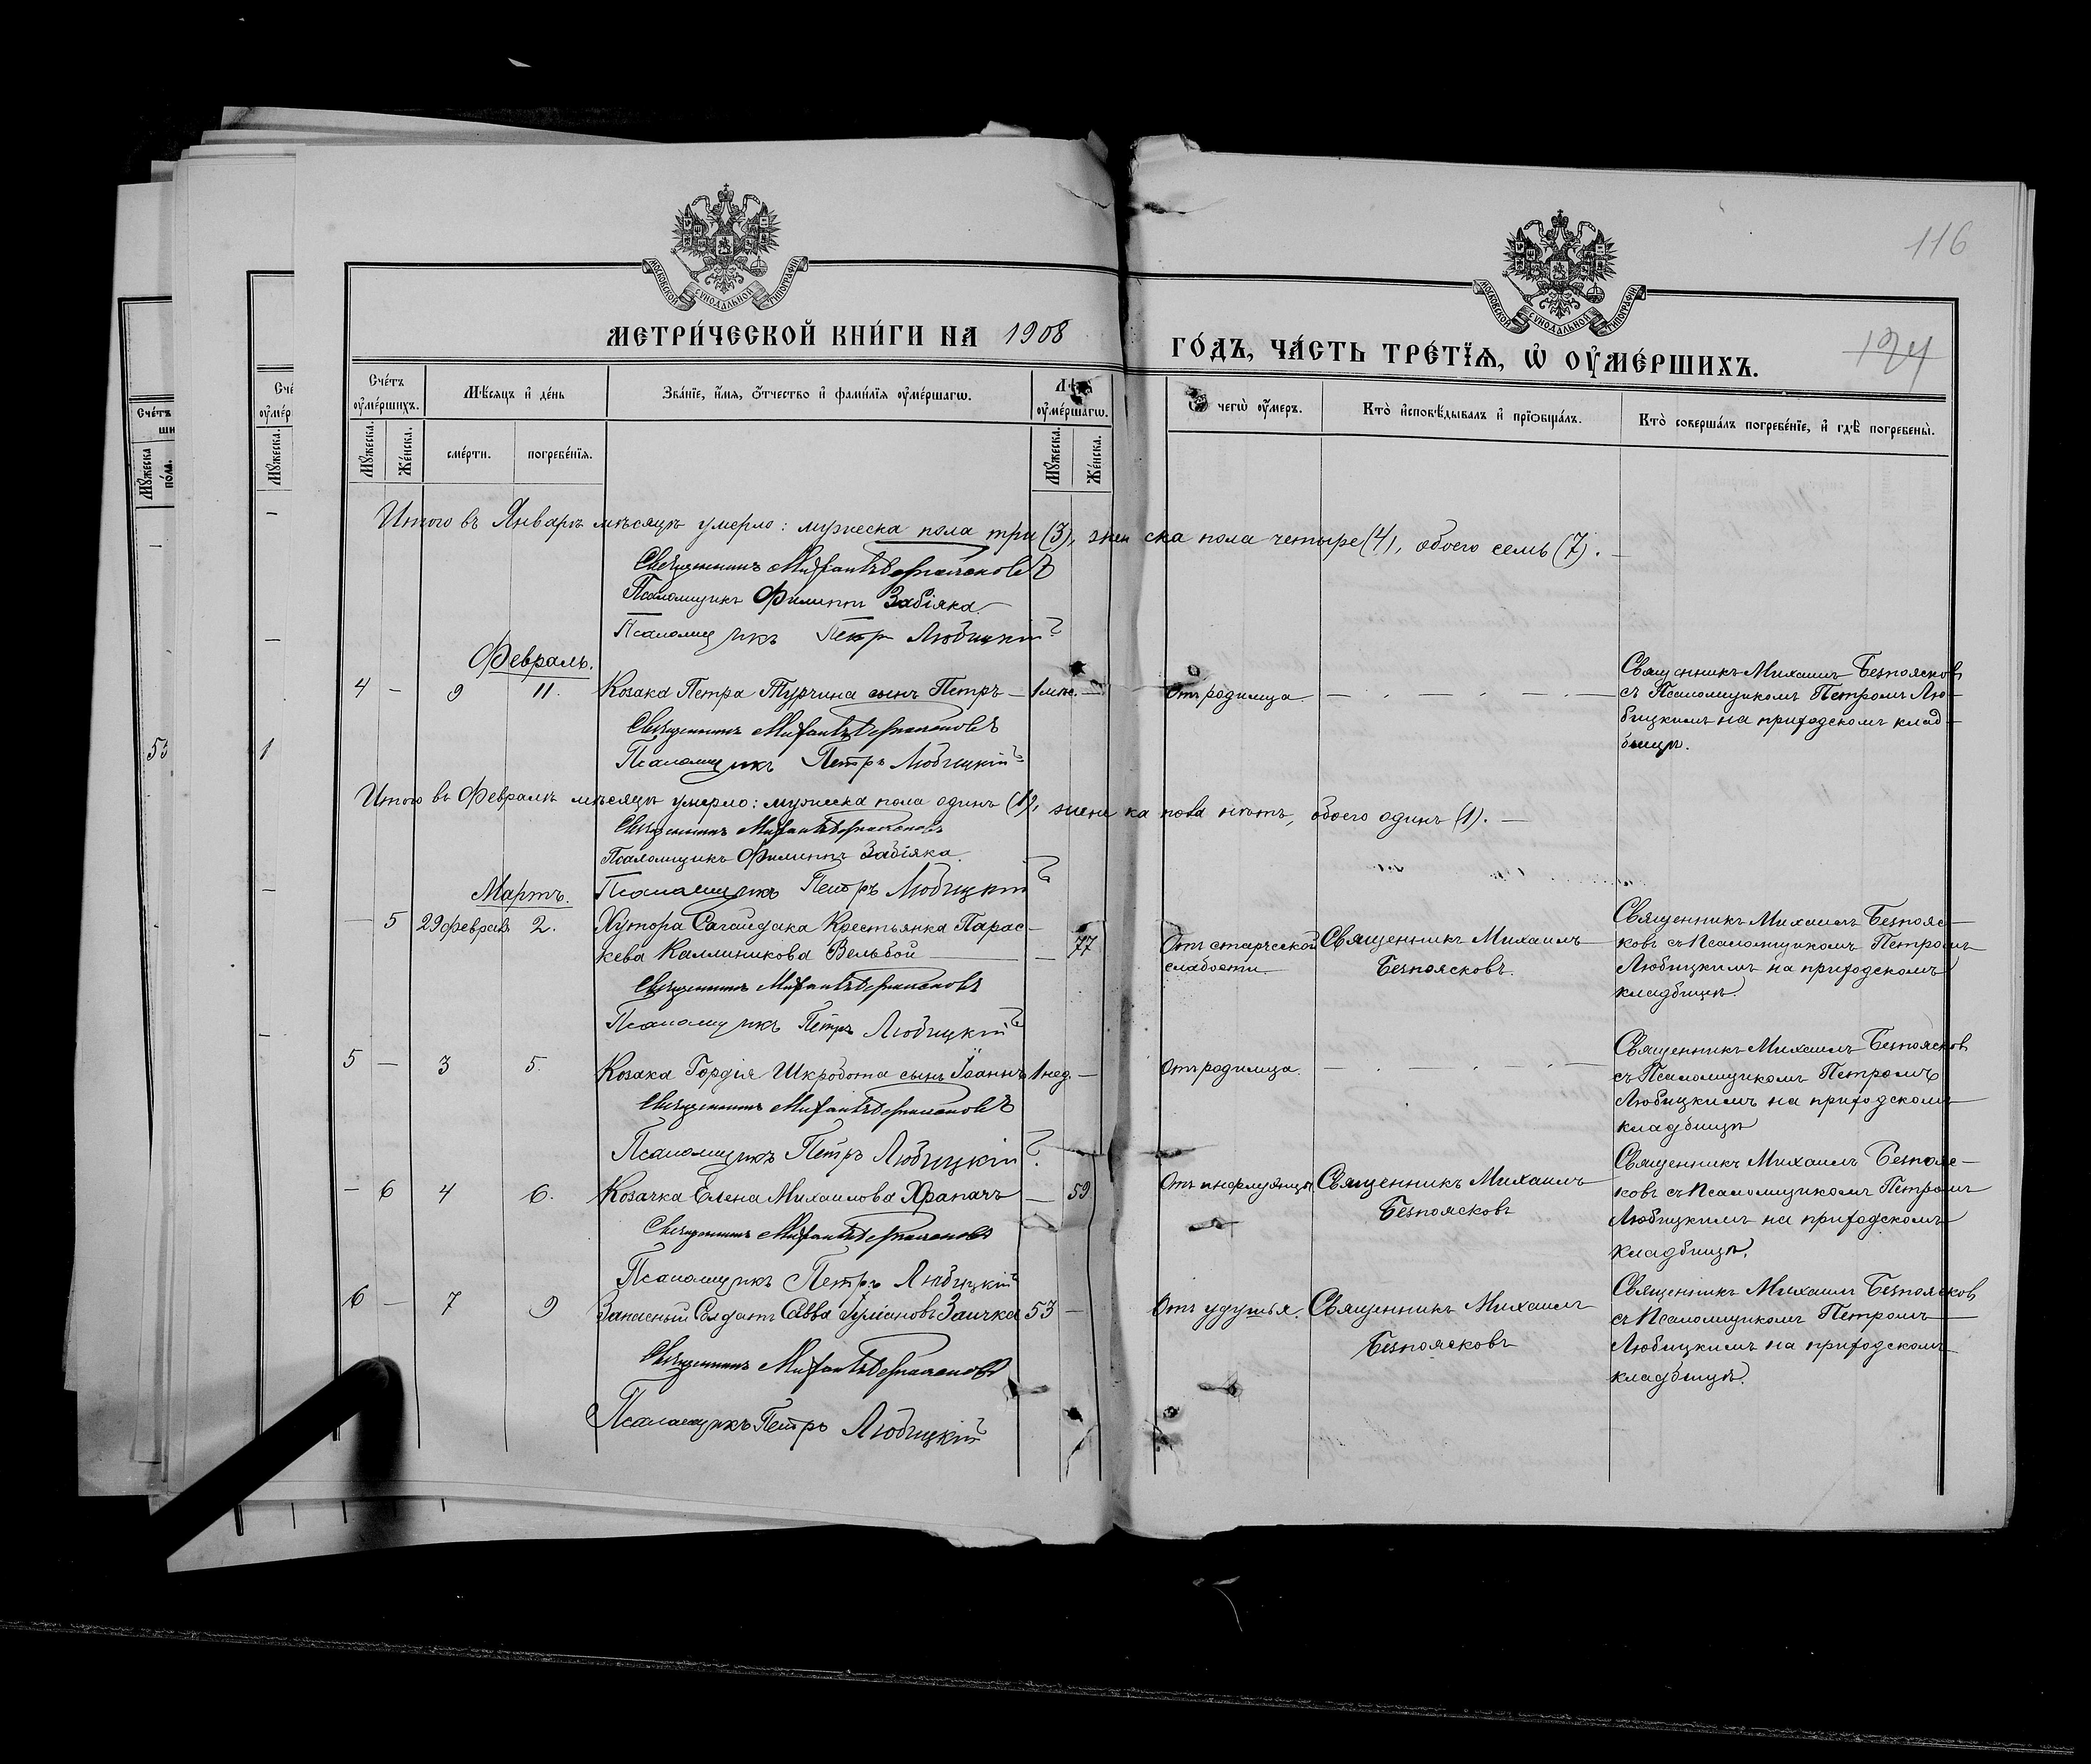 116
МОСКОВСКОЙ СѴНОДАЛЬНОЙ ТИПОГРАФІИ
МОСКОВСКОЙ СѴНОДАЛЬНОЙ ТИПОГРАФІИ
МЕТРИ́ЧЕСКОЙ КНИ́ГИ НА 1908
ГО́ДЪ, ЧА́СТЬ ТРЕ́ТЇѦ, Ѡ҆ ОУ҆МЕ́РШИХЪ.
124
Счетъ оумершихъ.
Мѣсяцъ и день
Званїе, имя, отчество и фамилїя оумершагѡ.
Лѣта оумершагѡ.
чегѡ оумеръ.
Кто исповѣдывалъ и прїобщалъ.
Кто совершалъ погребенїе, и гдѣ погребены.
Мужеска.
Женска.
смерти.
погребенїя.
Мужеска.
Женска.
Итого въ Январѣ мѣсяцѣ умерло: мужеска пола три (3), женска пола четыре (4), обоего семь (7). —
Священникъ Михаилъ Безпоясковъ
Псаломщикъ Филиппъ Забіяка.
Псаломщикъ Петръ Любицкій
Февраль.
4 — 9 11. Козака Петра Турчина сынъ Петръ — 1 мѣс. — Отъ родимца. — Священникъ Михаилъ Безпоясковъ
съ Псаломщикомъ Петромъ Лю-
бицкимъ на приходскомъ клад-
бищѣ.
Священникъ Михаилъ Безпоясковъ
Псаломщикъ Петръ Любицкій
Итого въ Февралѣ мѣсяцѣ умерло: мужеска пола одинъ (1), женска пола нѣтъ, обоего одинъ (1). —
Священникъ Михаилъ Безпоясковъ
Псаломщикъ Филиппъ Забіяка.
Псаломщикъ Петръ Любицкій
Мартъ.
— 5 29 февраля 2. Хутора Сагайдака Крестьянка Парас-
кева Каллиникова Вельбой — 77 Отъ старческой слабости. Священникъ Михаилъ Безпоясковъ.
Священникъ Михаилъ Безпояс-
ковъ съ Псаломщикомъ Петромъ
Любицкимъ на приходскомъ
кладбищѣ.
Священникъ Михаилъ Безпоясковъ
Псаломщикъ Петръ Любицкій
5 — 3 5. Козака Гордія Шкробота сынъ Іоаннъ 1 нед. — Отъ родимца. — Священникъ Михаилъ Безпоясков
съ Псаломщикомъ Петромъ
Любицкимъ на приходскомъ
кладбищѣ
Священникъ Михаилъ Безпоясковъ
Псаломщикъ Петръ Любицкій
— 6 4 6. Козачка Елена Михаилова Храпачъ — 59. Отъ инфлуэнцы Священникъ Михаилъ Безпоясковъ
Священникъ Михаилъ Безпояс-
ковъ съ Псаломщикомъ Петромъ
Любицкимъ на приходскомъ
кладбищѣ.
Священникъ Михаилъ Безпоясковъ
Псаломщикъ Петръ Любицкій
6 — 7 9 Запасный Солдатъ Савва Заичка 53 — Отъ удушья. Священникъ Михаилъ Безпоясковъ
Священникъ Михаилъ Безпоясков
съ Псаломщикомъ Петромъ
Любицкимъ на приходскомъ
кладбищѣ.
Священникъ Михаилъ Безпоясковъ
Псаломщикъ Петръ Любицкій
53
1